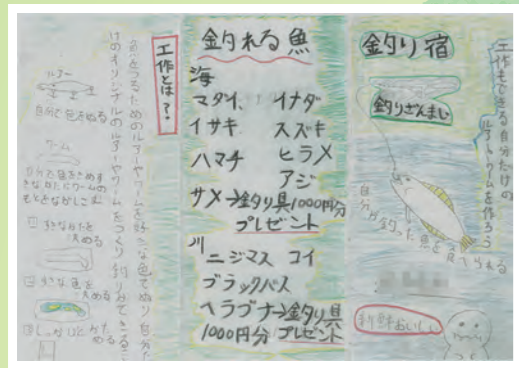 工作もできる自分だけの
ルアー、ワームを作ろう
釣り宿
釣りざんまい
自分が釣った魚を食べられる
新鮮おいしい
釣れる魚
海
マダイ、イナダ
イサキ スズキ
ハマチ ヒラメ
アジ
サメ→釣り具1000円分
プレゼント
川
ニジマス コイ
ブラックバス
ヘラブナ→釣り具
1000円分プレゼント
工作とは?
魚をつるためのルアーやワームを好きな色でぬり自分だ
けのオリジナルのルアーやワームをつくり釣りができるこ
ルアー
自分で色をぬる
ワーム
自分で色をきめ
すきなかたにワームの
もとをながしこむ
1 すきなかたを
決める
2 すきな色を
決める
3 しっかりとかた
める